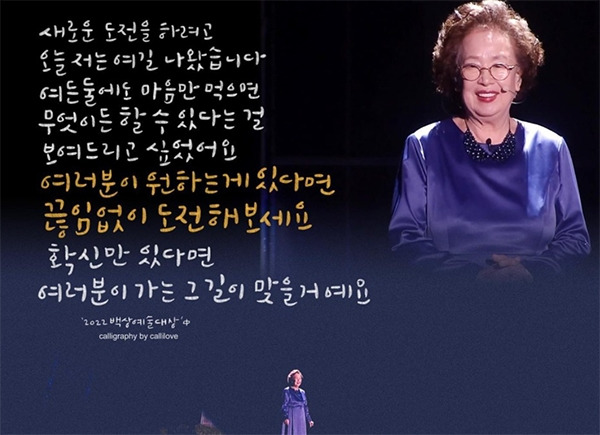 새로운 도전을 하려고
오늘 저는 여길 나왔습니다
여든둘에도 마음만 먹으면
무엇이든 할 수 있다는 걸
보여드리고 싶었어요
여러분이 원하는게 있다면
끊임없이 도전해보세요
확신만 있다면
여러분이 가는 그 길이 맞을거예요
'2022 백상예술대상' 中
calligraphy by callilove